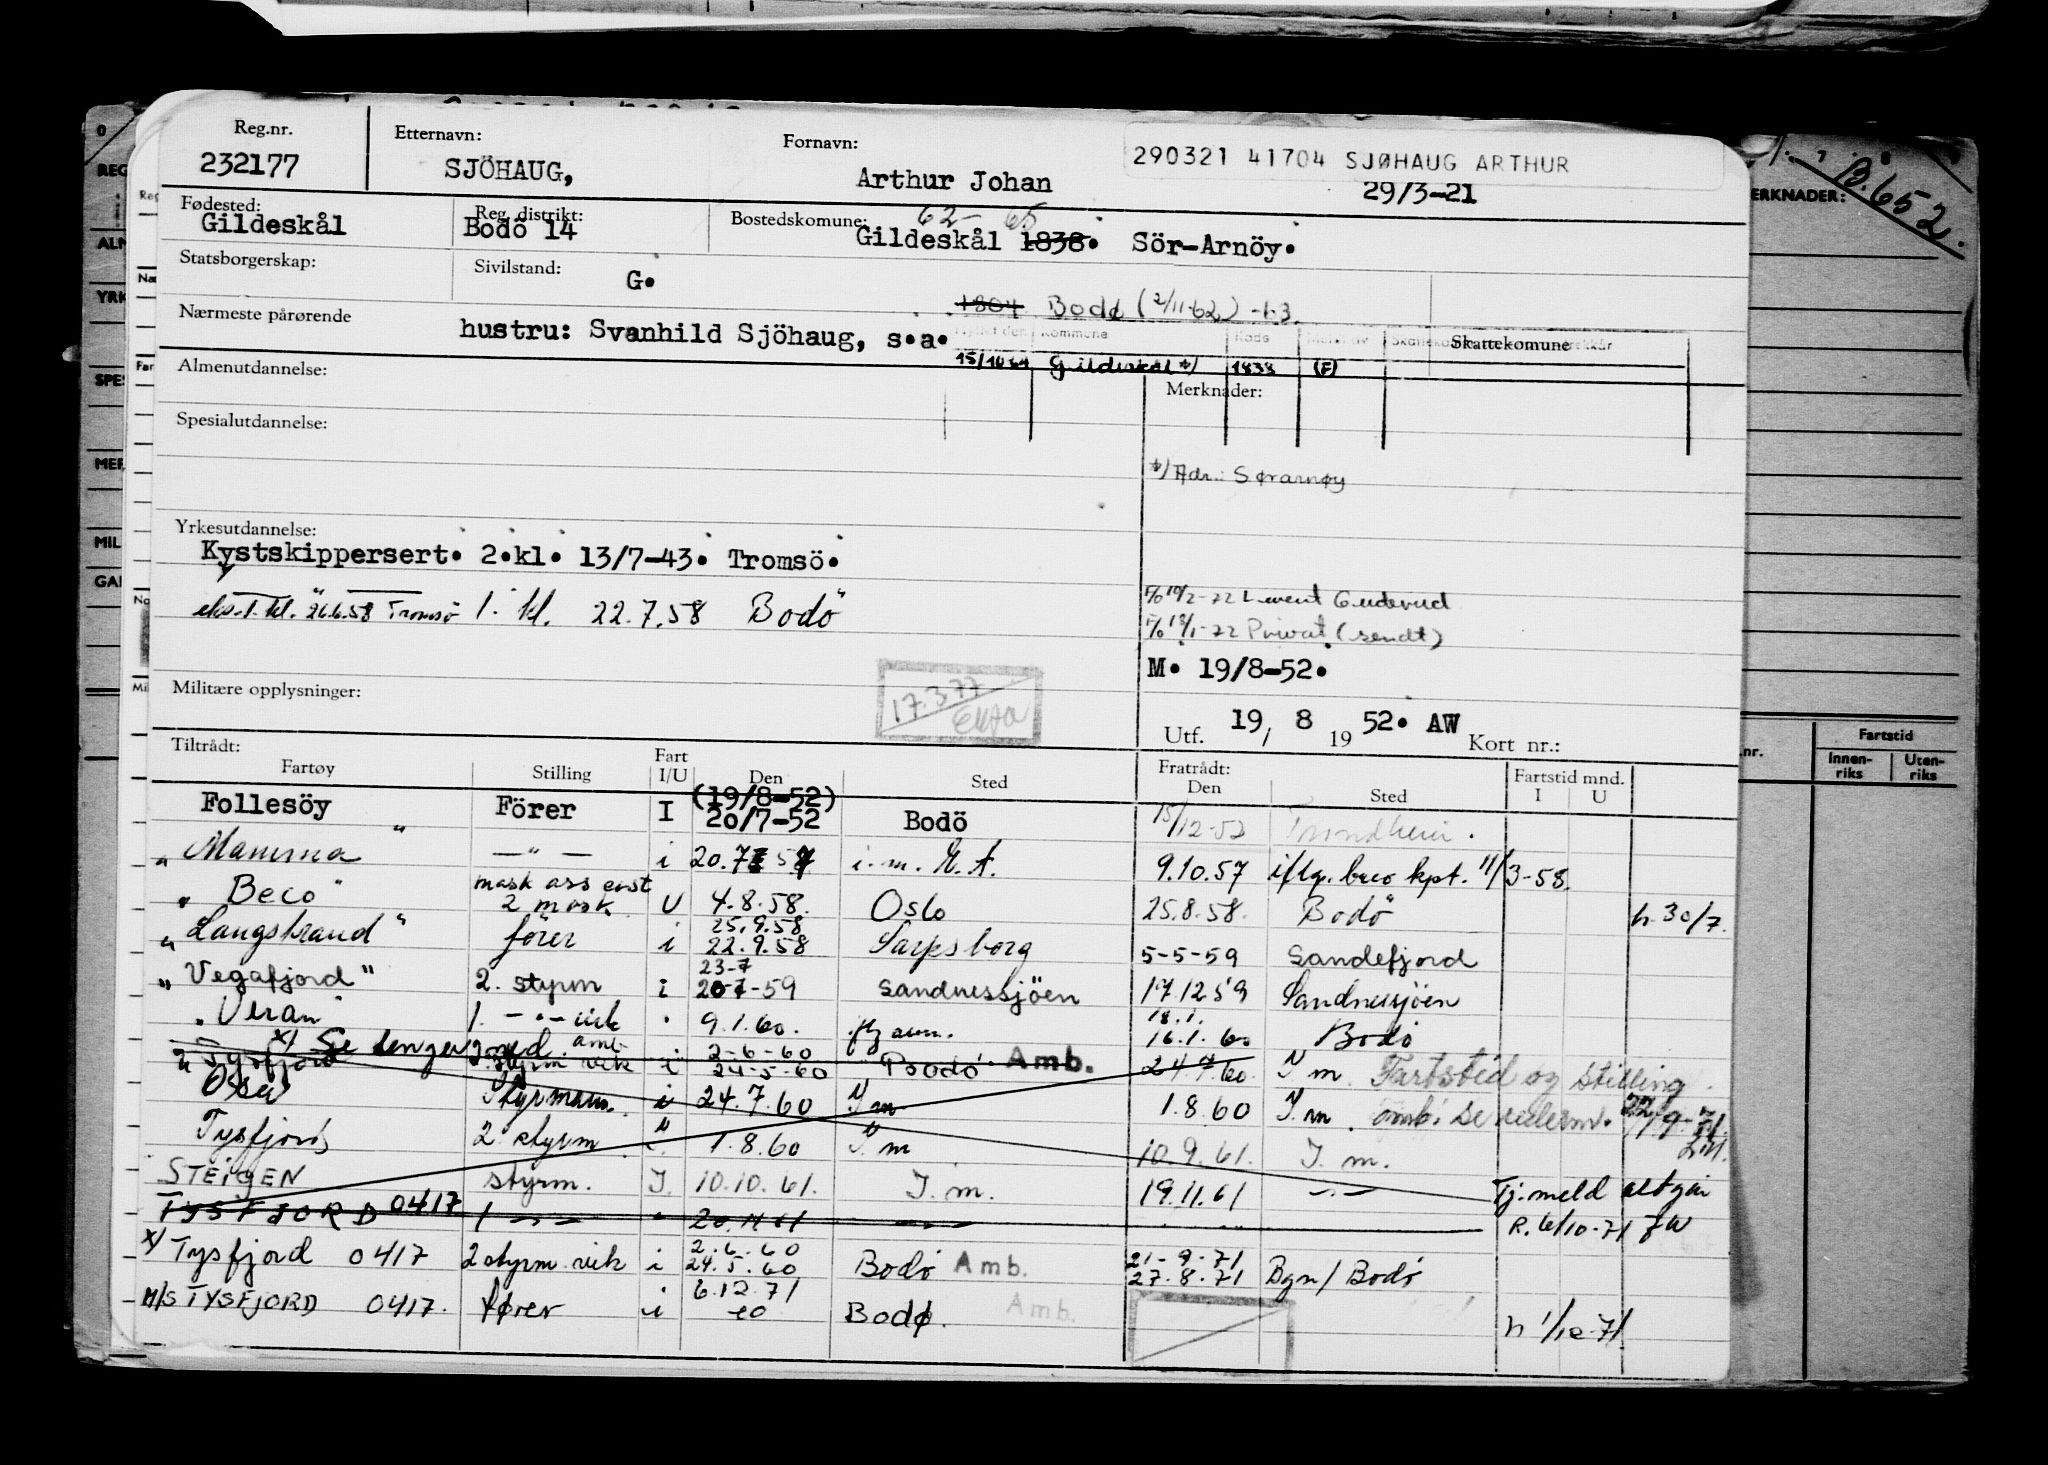 Reg.nr. Etternavn: Fornavn: 290321 41704 SJØHAUG ARTHUR
232177 SJÖHAUG, Arthur Johan 29/3-21
MERKNADER: B.652.
Fødested: Reg. distrikt: Bostedskomune: 62- 65
Gildeskål Bodö 14 Gildeskål 1838. Sör-Arnöy.
Statsborgerskap: Sivilstand: G.
1804 Bodø (2/11-62) -1-3.
Nærmeste pårørende hustru: Svanhild Sjöhaug, s.a.
Kommune Kode Skattekomune
15/10 64 Gildeskål */ 1838 (F)
Almenutdannelse: Merknader:
Spesialutdannelse:
*/ Adr.: Sørarnøy
Yrkesutdannelse:
Kystskippersert. 2.kl. 13/7-43. Tromsö.
eks. 1. kl. 26.6.58 Tromsö 1. kl. 22.7.58 Bodö
F/o 10/2-72 Levent Gudevud
F/o 18/1-72 Privat (sendt)
M. 19/8-52.
Militære opplysninger: 17.3.77
Utf. 19/ 8 19 52. AW Kort nr.:
Tiltrådt: Fart Fratrådt: Fartstid mnd.
Fartøy Stilling I/U Den Sted Den Sted I U
Fartstid
Innenriks Utenriks
(19/8-52)
Follesöy Förer I 20/7-52 Bodö 15/12-52 Trondheim.
"Mamma" —"— i 20.7 57 i.m. 9.10.57 i flg. brev kpt. 11/3-58.
"Beco" mask ass enst 2 mask U 4.8.58. Oslo 25.8.58. Bodö h. 30/7.
25.9.58
"Langstrand" förer i 22.9.58 Sarpsborg 5-5-59 Sandefjord
23-7
"Vegafjord" 2. styrm i 207-59 Sandnessjöen 17.12 59 Sandnessjöen
18.1.
"Veran 1. —"— vik " 9.1.60. 16.1.60 Bodö
x/ Se lenger ned. amb. 2-6-60
"Tysfjord 2. styrm vik i 24-5-60 Bodö Amb. 24.7.60 I m Fartstid og stilling
Oser Styrmann. i 24.7.60 I m 1.8.60 I. m. amb. se nederm. 22/9-71.
Tysfjord 2 styrm " 1.8.60 I m 10.9.61. I. m.
STEIGEN styrm. I. 10.10.61. I. m. 19.11.61 —"— Tj.meld
TYSFJORD 0417 1 —"— " 20.11 61 —"— R. 6/10-71
2.6.60 21-9-71
x/ Tysfjord 0417 2 styrm. vik i 24.5.60 Bodö Amb. 27.8.71 Bgn/Bodö
6.12.71
M/S TYSFJORD 0417. fører i Bodø. Amb. h 1/12-71.